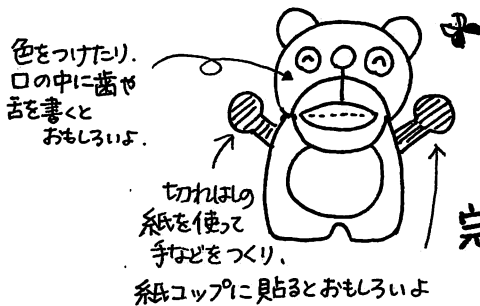 色をつけたり.
口の中に歯や
舌を書くと
おもしろいよ.
切れはしの
紙を使って
手などをつくり、
紙コップに貼るとおもしろいよ
完